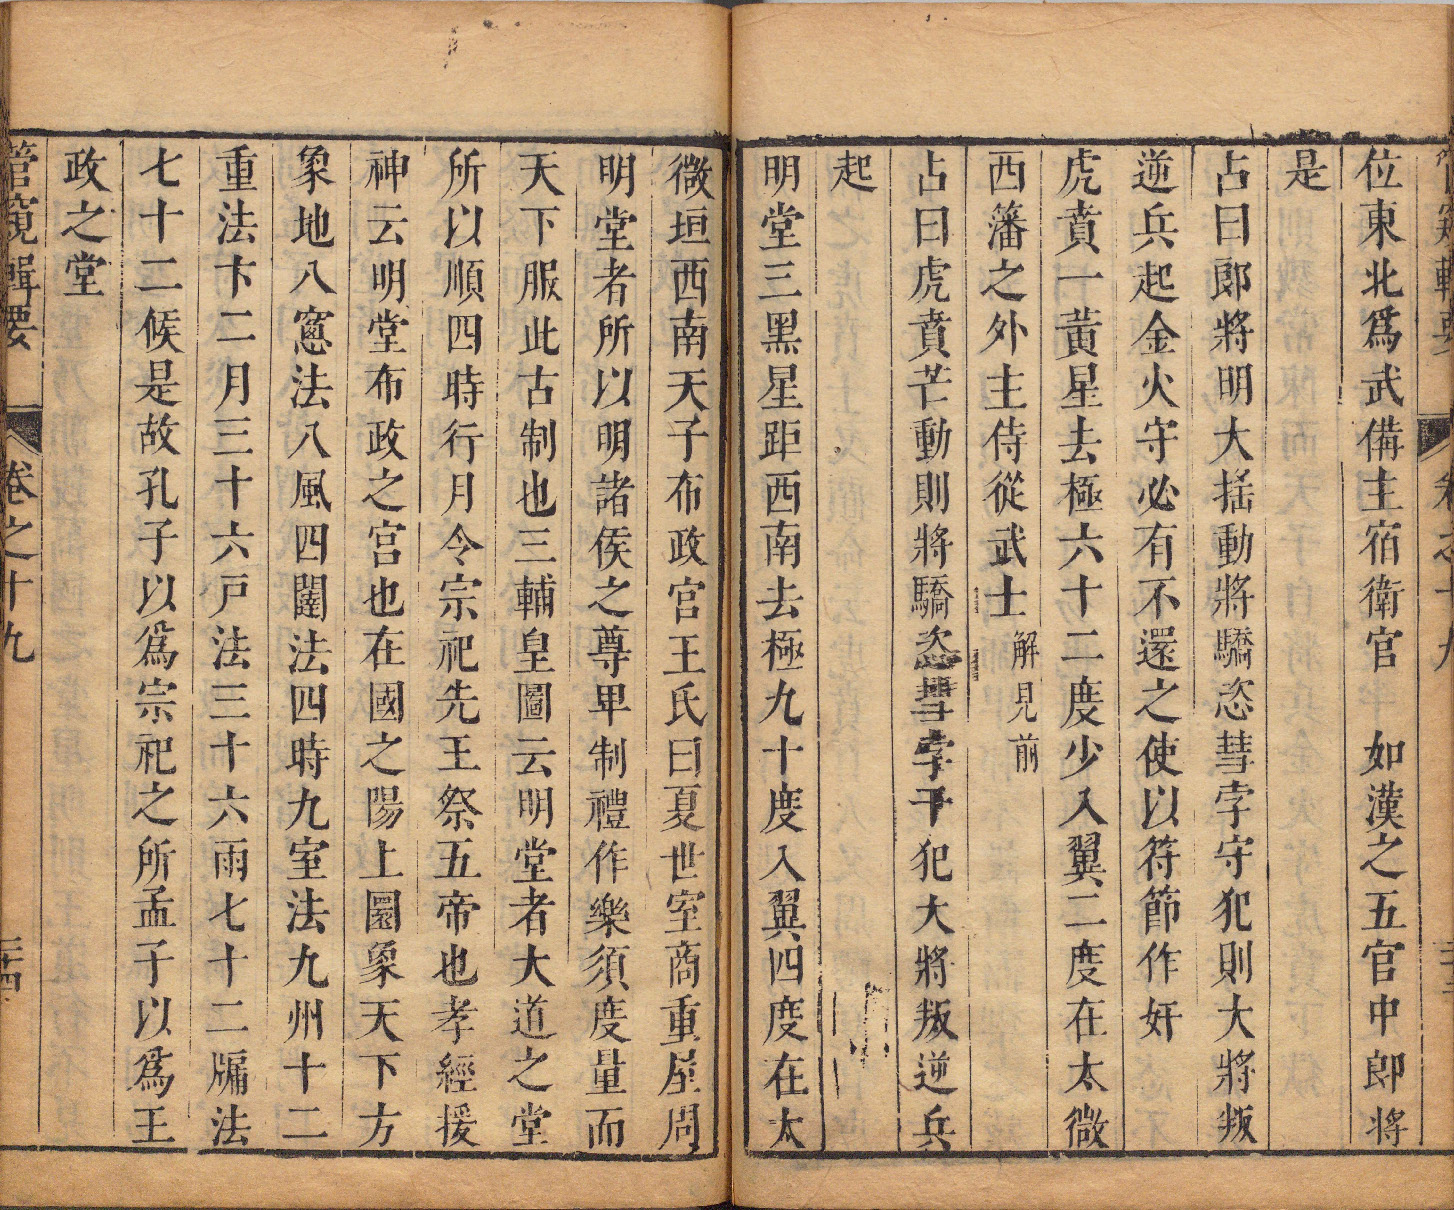 位東北爲武備主宿衛官　如漢之五官中郎將
是
占曰郎將明大揺動將驕恣彗孛守犯則大將叛
逆兵起金火守必有不還之使以符節作奸
虎賁一黃星去極六十二度少入翼二度在太微
西藩之外主侍從武士解見前
占曰虎賁芒動則將驕恣彗孛干犯大將叛逆兵
起
明堂三黑星距西南去極九十度入翼四度在太
微垣西南天子布政宮王氏曰夏世室商重屋周
明堂者所以明諸侯之尊卑制禮作樂須度量而
天下服此古制也三輔皇圖云明堂者大道之堂
所以順四時行月令宗祀先王祭五帝也孝經援
神云明堂布政之宮也在國之陽上圜象天下方
象地八窻法八風四闥法四時九室法九州十二
重法十二月三十六戸法三十六雨七十二牖法
七十二候是故孔子以爲宗祀之所孟子以爲王
政之堂
管窺輯要　卷之十九　三十四